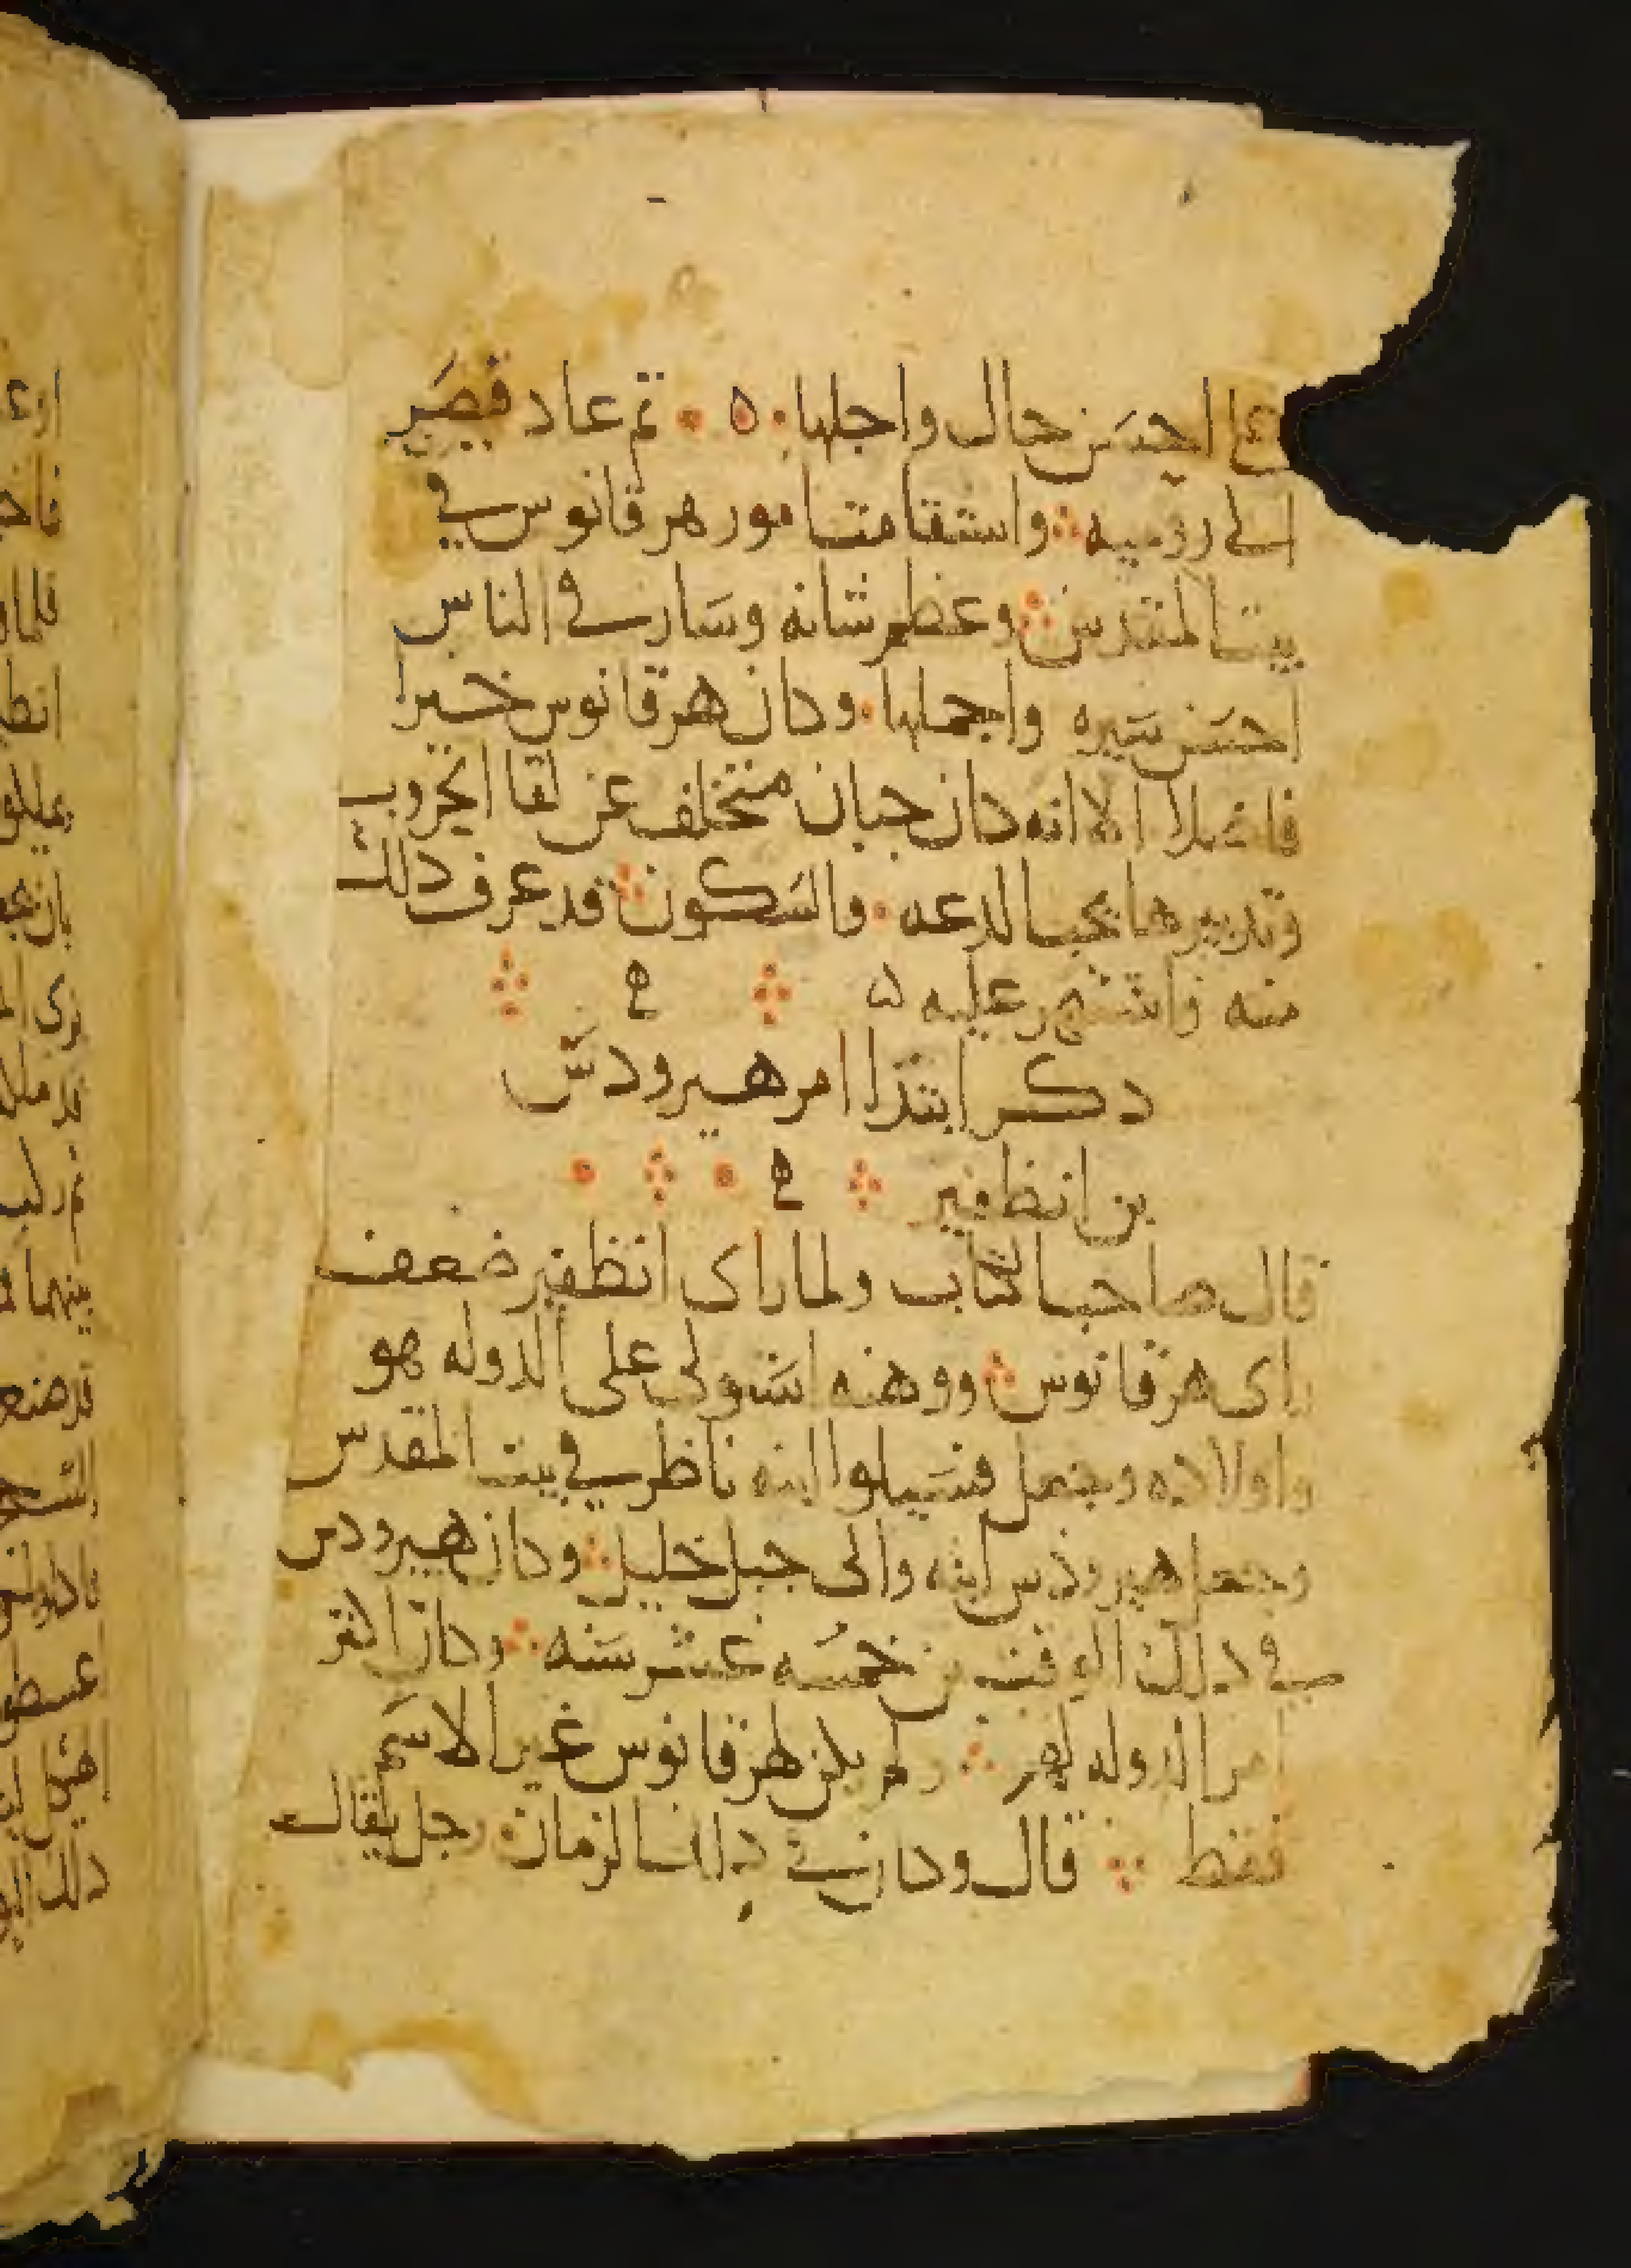 على احسن حال واجلها ه ثم عاد قيصر
الى روميه واستقامت امور هرقانوس في
بيت المقدس وعظم شانه وسار في الناس
احسن سيره واجملها وكان هرقانوس خيرا
فاضلا الا انه كان جبان متخلف عن لقا الحروب
وتدبيرها يحب الدعه والسكون قد عرف ذلك
منه واشتهر عليه ه
دكر ابتدا امر هيرودس
بن انطفير
قال صاحب الكتاب ولما راى انظفير ضعف
راى هرقانوس ووهنه استولى على الدوله هو
واولاده وجعل فسيلوا ابنه ناظر في بيت المقدس
وجعل هيرودس ابنه والى جبل خليل وكان هيرودس
في دلك الوقت بن خمسه عشر سنه وكان
امر الدوله لهم ولم يكن لهرقانوس غير الاسم
فقط قال وكان في دلك الزمان رجل يقال